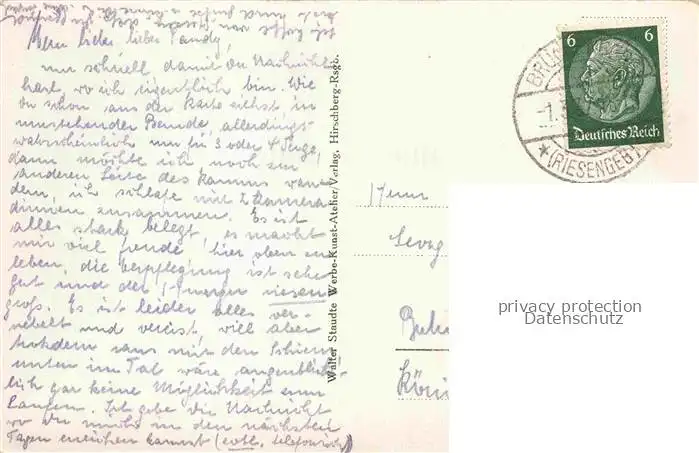 Mein lieber, lieber Tandy,
nur schnell, damit du Nachricht
hast, wo ich eigentlich bin. Wie
du schon aus der Karte siehst, in
umstehender Baude, allerdings
wahrscheinlich nur für 3 oder 4 Tage,
dann möchte ich noch zur
anderen Seite des Kammes wan-
dern, ich schlafe mit 2 Kamera-
dinnen zusammen. Es ist
alles stark belegt, es macht
mir viel Freude hier oben zu
leben, die Verpflegung ist sehr
gut und der Hunger riesen
groß. Es ist leider alles ver-
nebelt und vereist, will aber
trotzdem raus mit den Schiern,
unten im Tal wäre augenblick-
lich gar keine Möglichkeit zum
Laufen. Ich gebe dir Nachricht
wo du mich in den nächsten
Tagen erreichen kannst (evtl. telefonisch)
Walter Staudte Werbe-Kunst-Atelier/Verlag, Hirschberg-Rsgb.
6 6
Deutsches Reich
BRÜ
-1.
(RIESENGEB)
Herrn
Georg
Berlin
Köni
privacy protection
Datenschutz